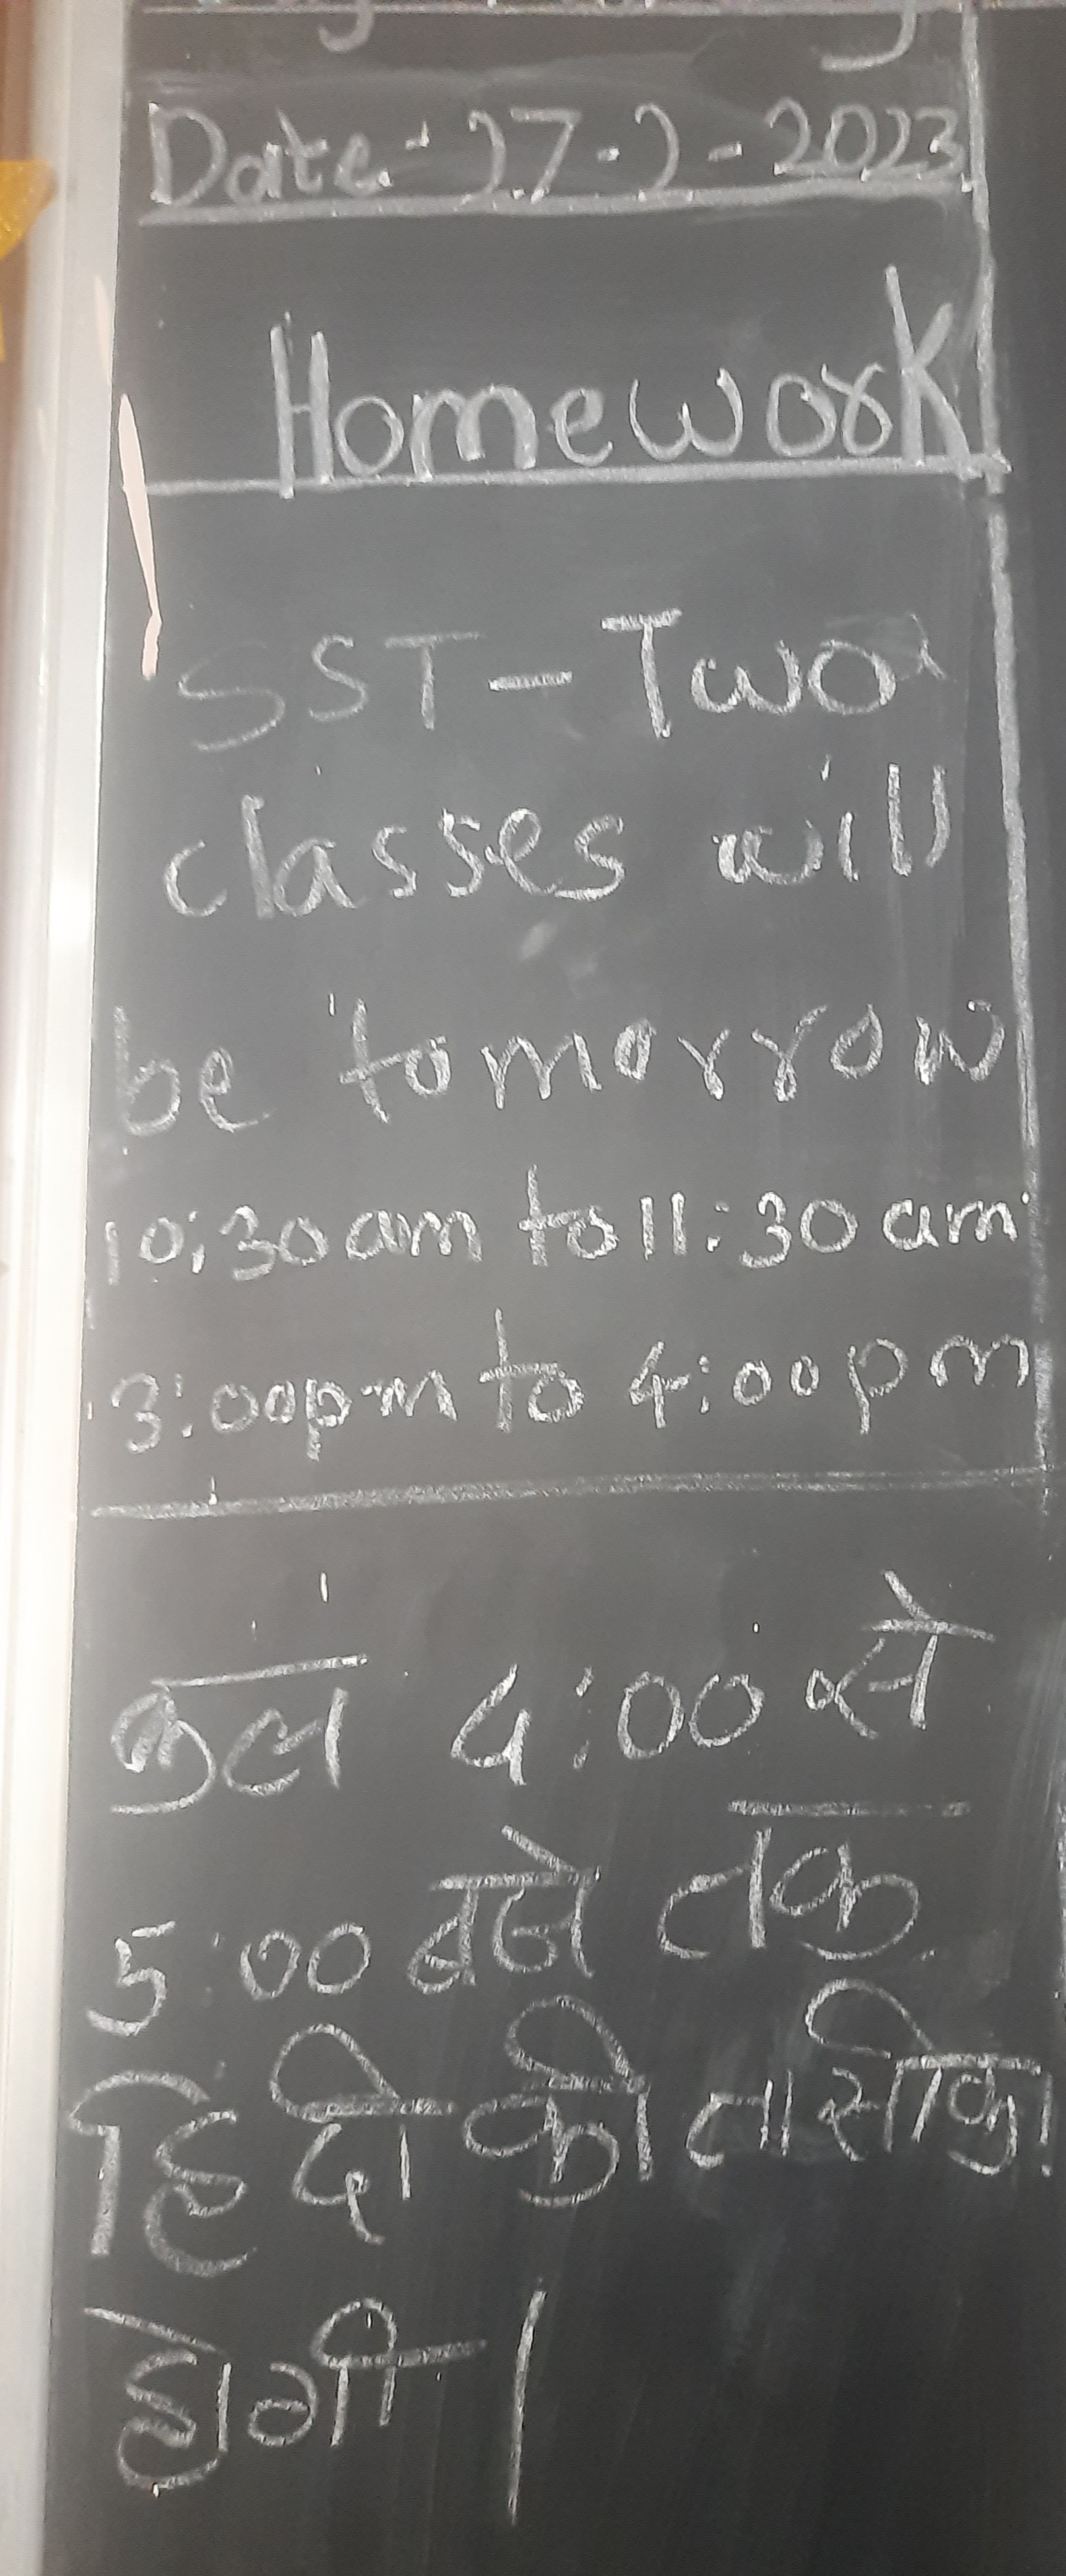 Date - 27-2-2023
Homework
SST - Two
classes will
be tomorrow
10:30am to 11:30am
3:00pm to 4:00pm
कल 4:00 से
5:00 बजे तक
हिंदी की
होगी।